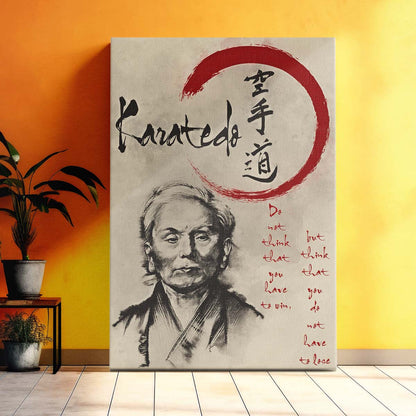 Karatedo
空
手
道
Do
not
think
that
you
have
to win.
but
think
that
you
do
not
have
to lose